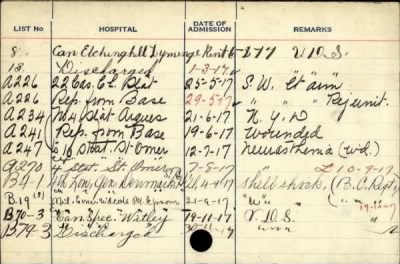 LIST NO HOSPITAL DATE OF ADMISSION REMARKS
8 Can Etchinghill Lyminge Kent 6-1-17 V.D.S.
13 Discharged 1-3-17
A226 22 Cas. Cl. Stat 25-5-17 S.W. Lt arm
A226 Rep. from Base 29-5-17 " " " Rej unit.
A234 Stat Arques 21-6-17 N.Y.D
A241 Rep. from Base 19-6-17 Wounded
A247 Stat. St. Omer 12-7-17 Neurasthenia (wd.)
A270 4 Stat. St. Omer 7-8-17
B4-1 4th Lon. Gen. Denmark 4-9-17 Shell shock, (B.C. Regt)
B.19 Epsom 21-9-17 "W"
B70-3 Can. Spec. Witley 19-11-17 V.D.S.
B79-3 Discharged 30-11-17